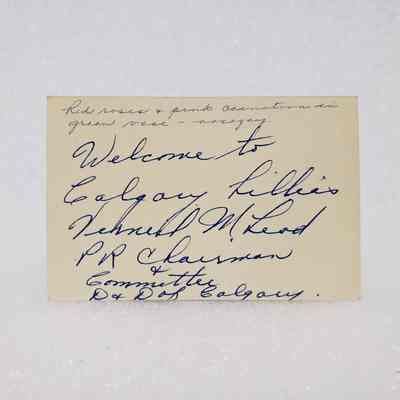 Red roses & pink carnations in
green vase - nosegay
Welcome to
Calgary Lillias
McLeod
P R Chairman
&
Committee
D & D of Calgary.